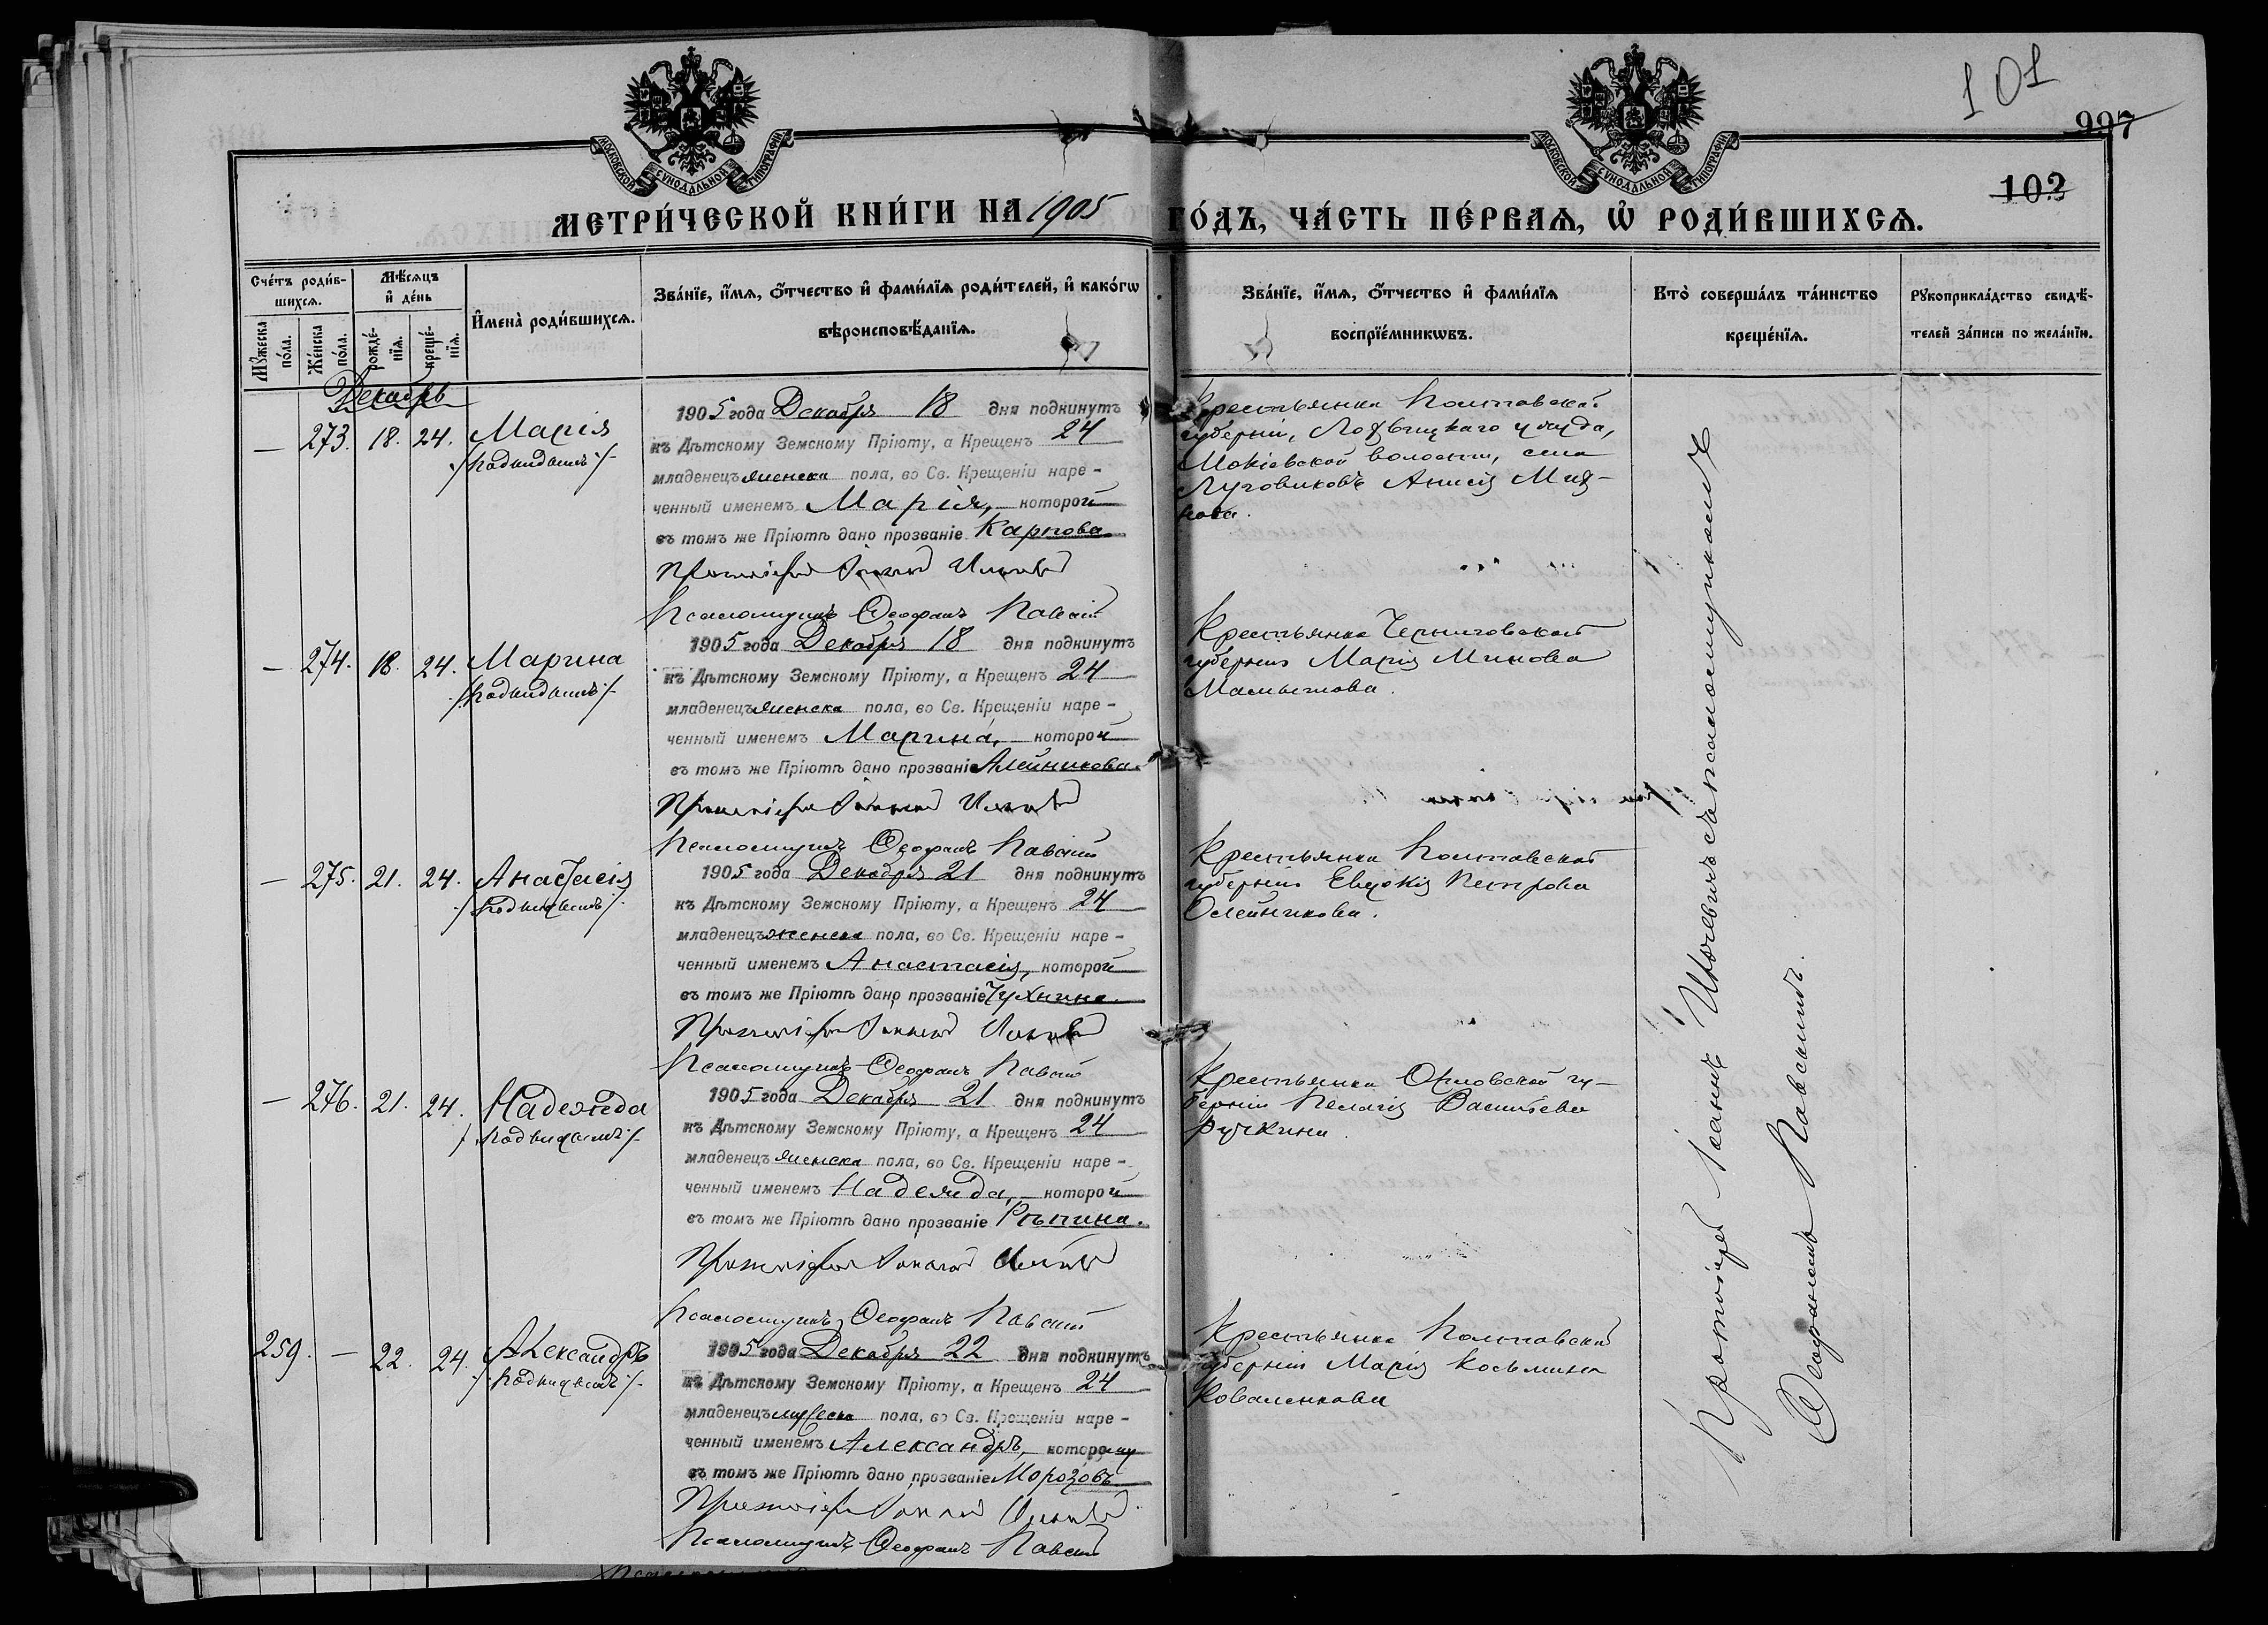 101
997
102
МОСКОВСКОЙ СѴНОДАЛЬНОЙ ТИПОГРАФІИ
МОСКОВСКОЙ СѴНОДАЛЬНОЙ ТИПОГРАФІИ
МЕТРИ́ЧЕСКОЙ КНИ́ГИ НА 1905 ГО́ДЪ, ЧА́СТЬ ПЕ́РВАѦ, Ѡ҆ РОДИ́ВШИХСѦ.
Сче́тъ роди́в-
шихсѧ.
Мꙋ́жеска по́ла.
Же́нска по́ла.
Мѣ́сѧцъ
и҆ де́нь
рожде́-
нїѧ.
креще́-
нїѧ.
И҆мена̀ роди́вшихсѧ.
Зва́нїе, и҆́мѧ, ѻ҆́тчество и҆ фами́лїѧ роди́телей, и҆ како́гѡ
вѣроисповѣ́данїѧ.
Зва́нїе, и҆́мѧ, ѻ҆́тчество и҆ фами́лїѧ
воспрїе́мникѡвъ.
Кто̀ соверша́лъ та́инство
креще́нїѧ.
Рꙋкоприкла́дство свидѣ́-
телей за́писи по жела́нїю.
Декабрь
— 273. 18. 24. Марія
/Подкидышъ/
1905 года Декабря 18 дня подкинутъ
къ Дѣтскому Земскому Пріюту, а Крещенъ 24
младенецъ женска пола, во Св. Крещеніи наре-
ченный именемъ Марія, которой
въ томъ же Пріютѣ дано прозваніе Карпова.
Протоіерей Іоаннъ
Псаломщикъ Ѳеофанъ Павскій
Крестьянка Полтавской
губерніи, Лохвицкаго уѣзда,
Мокіевской волости, села
Луговиковъ Анисія
— 274. 18. 24. Марина
/Подкидышъ/
1905 года Декабря 18 дня подкинутъ
къ Дѣтскому Земскому Пріюту, а Крещенъ 24
младенецъ женска пола, во Св. Крещеніи наре-
ченный именемъ Марина, которой
въ томъ же Пріютѣ дано прозваніе Алейникова.
Протоіерей Іоаннъ
Псаломщикъ Ѳеофанъ Павскій
Крестьянка Черниговской
губерніи Марія Минова
— 275. 21. 24. Анастасія
/Подкидышъ/
1905 года Декабря 21 дня подкинутъ
къ Дѣтскому Земскому Пріюту, а Крещенъ 24
младенецъ женска пола, во Св. Крещеніи наре-
ченный именемъ Анастасія, которой
въ томъ же Пріютѣ дано прозваніе Чухнина.
Протоіерей Іоаннъ
Псаломщикъ Ѳеофанъ Павскій
Крестьянка Полтавской
губерніи Евдокія Петрова
Олейникова.
— 276. 21. 24. Надежда
/Подкидышъ/
1905 года Декабря 21 дня подкинутъ
къ Дѣтскому Земскому Пріюту, а Крещенъ 24
младенецъ женска пола, во Св. Крещеніи наре-
ченный именемъ Надежда, которой
въ томъ же Пріютѣ дано прозваніе Рѣпина.
Протоіерей Іоаннъ
Псаломщикъ Ѳеофанъ Павскій
Крестьянка Орловской гу-
берніи Пелагія Васильева
Ручкина.
259. — 22. 24. Александръ
/Подкидышъ/
1905 года Декабря 22 дня подкинутъ
къ Дѣтскому Земскому Пріюту, а Крещенъ 24
младенецъ мужеска пола, во Св. Крещеніи наре-
ченный именемъ Александръ, которому
въ томъ же Пріютѣ дано прозваніе Морозовъ.
Протоіерей Іоаннъ
Псаломщикъ Ѳеофанъ Павскій
Крестьянка Полтавской
губерніи Марія Косьмина
Коваленкова
Протоіерей Іоаннъ съ псаломщикомъ
Ѳеофаномъ Павскимъ.